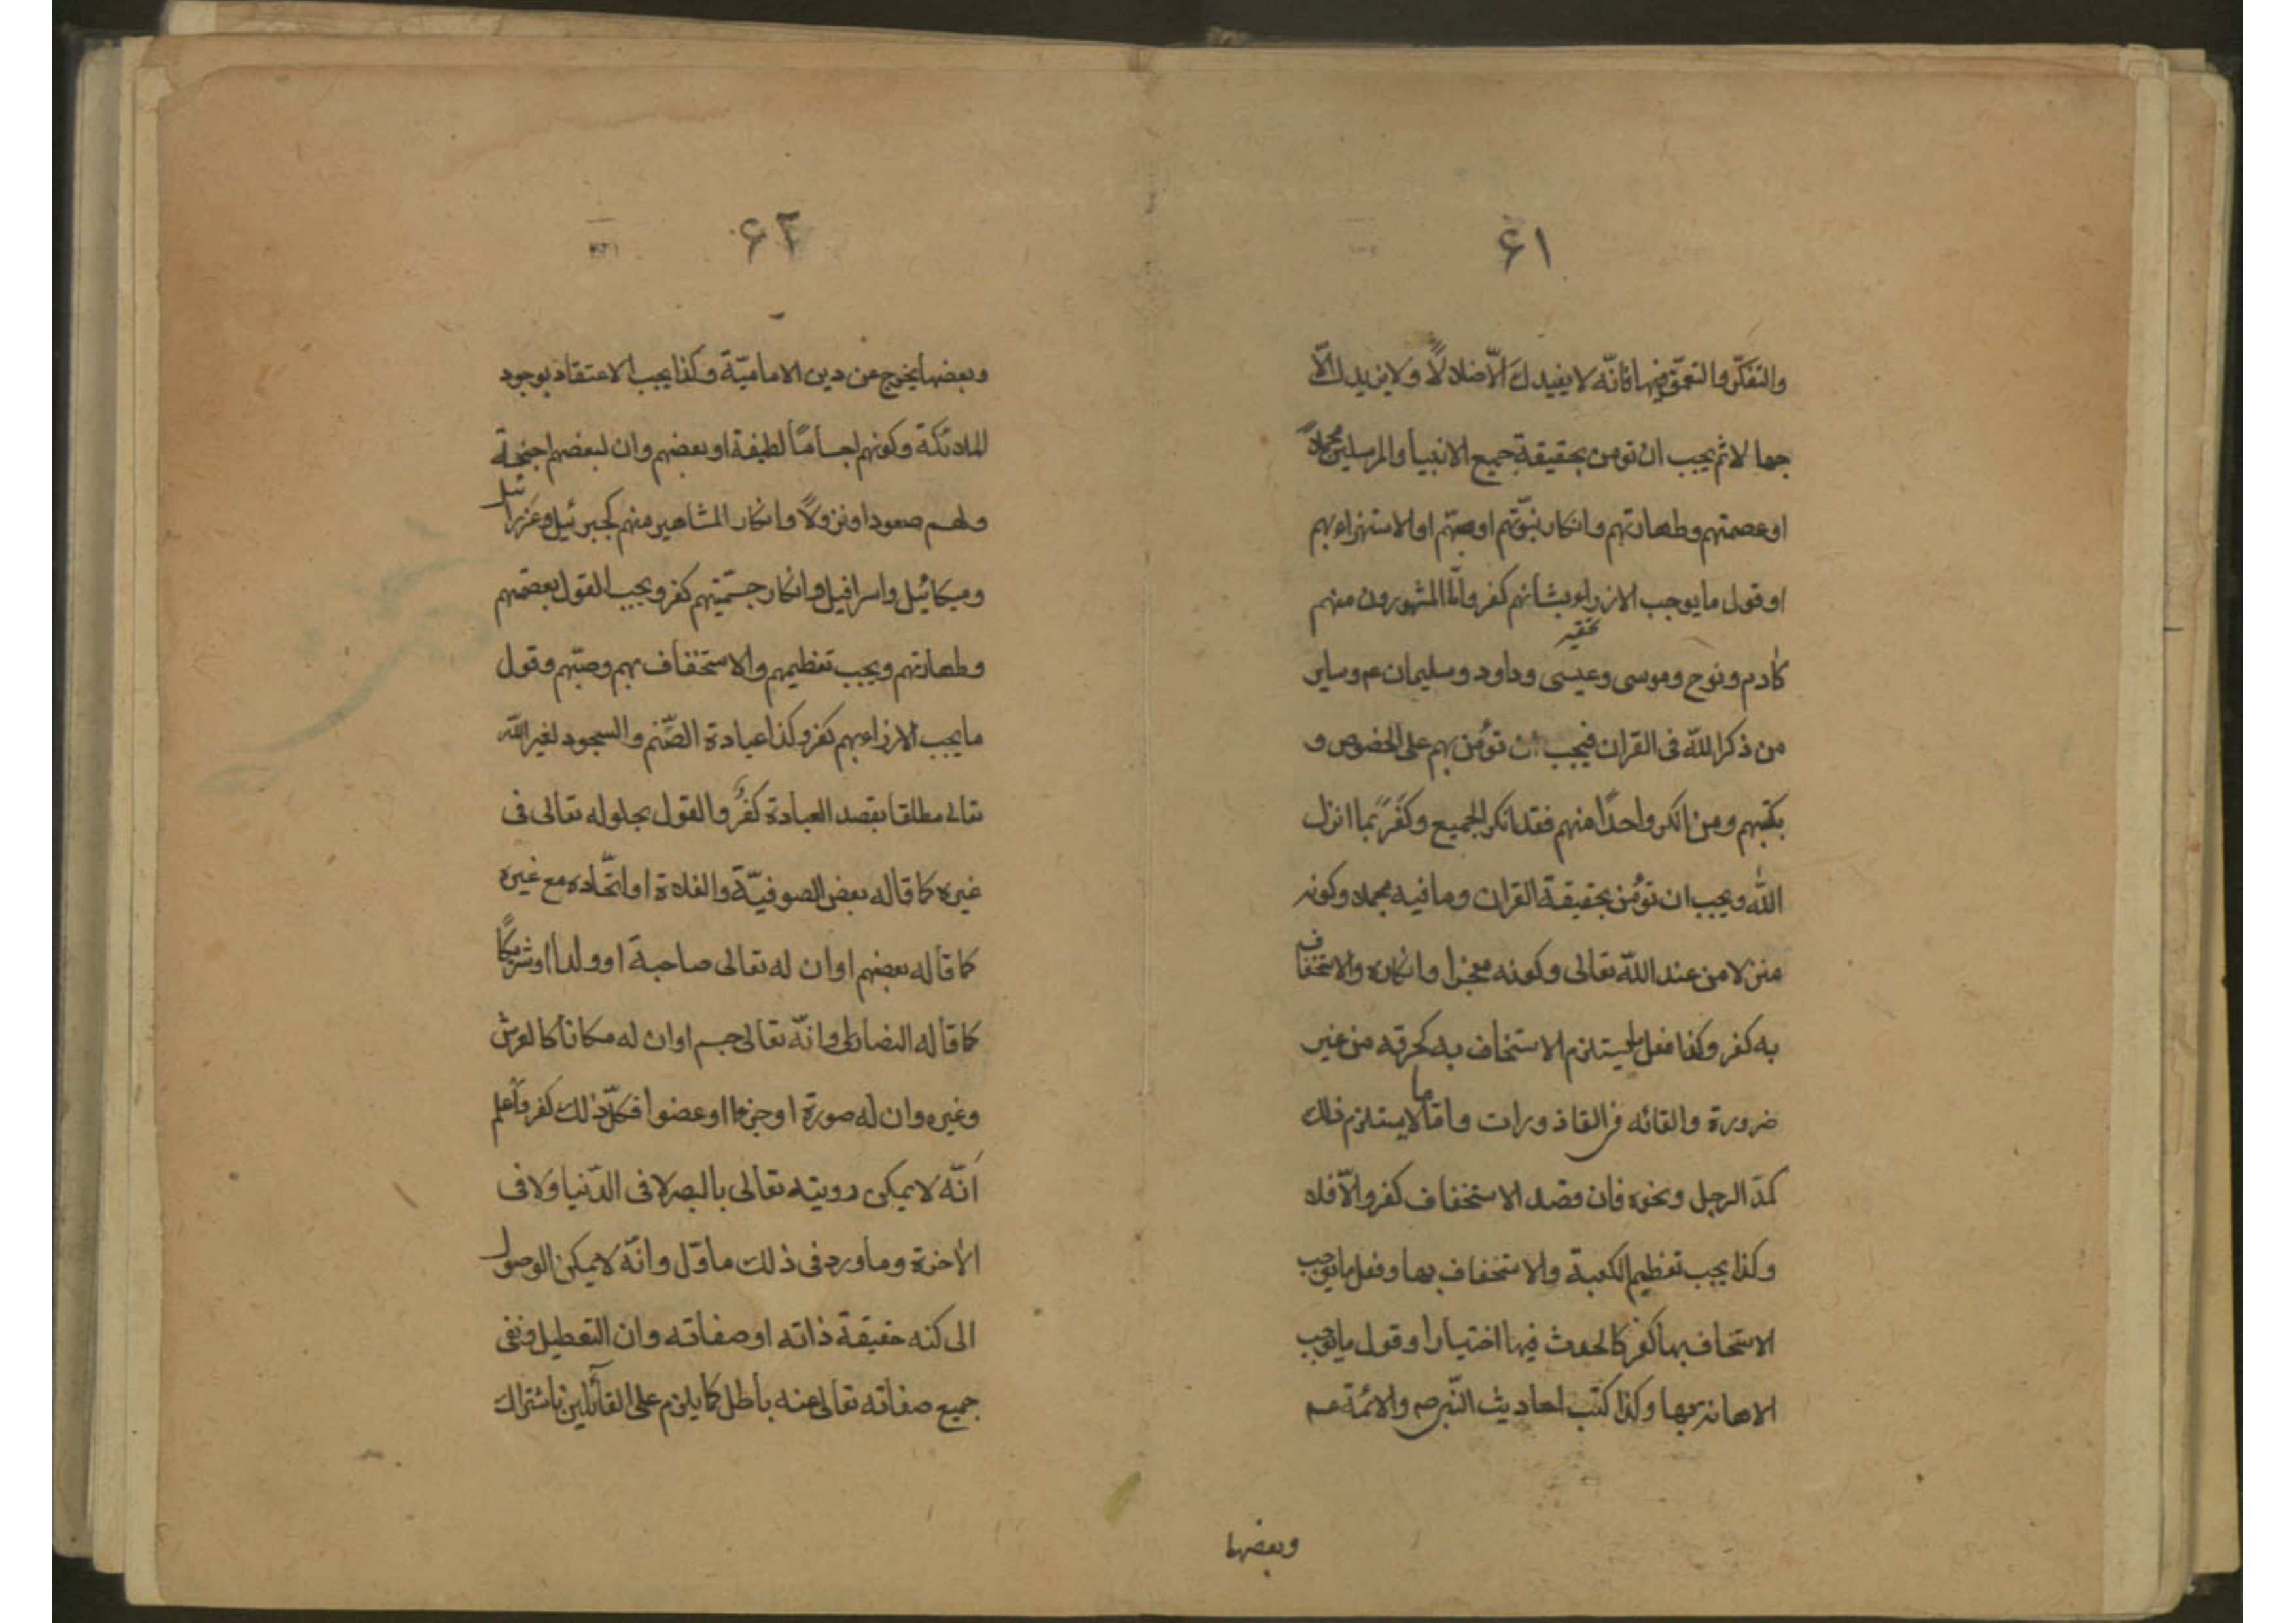 ۶۱
والتفكّر والتعمّق فيها فانّه لا يفيدك الّا ضلالاً ولا يزيدك الّا
جهالا ثم يجب ان تومن بحقيقة جميع الانبيا والمرسلين مجملاً
او عصمتهم وطهارتهم وانكار نبوّتهم او سبّهم او الاستهزاء بهم
او قول ما يوجب الازراء بشأنهم كفر وامّا المشهورون منهم
كادم ونوح وموسى وعيسى وداود وسليمان ع وساير
من ذكر الله فى القران فيجب ان تؤمن بهم على الخصوص و
بكتبهم ومن انكر واحدًا منهم فقد انكر الجميع وكفَرَ بما انزل
الله ويجب ان تؤمن بحقيقة القران وما فيه مجملا وكونه
منزلا من عند الله تعالى وكونه معجزا وانكاره والاستخفاف
به كفر وكذا فعل يستلزم الاستخاف به كحرقه من غير
ضرورة والقائه فى القاذورات واما ما لا يستلزم ذلك
كمدّ الرجل ونحوه فان قصد الاستخفاف كفر والّا فلا
وكذا يجب تعظيم الكعبة والاستخفاف بها وفعل ما يوجب
الاستخاف بها كفر كالحدث فيها اختيارا وقول ما يوجب
الاهانة بها وكذا كتب احاديث النّبى ص والائمّة عم
وبعضها
۶۲
وبعضها يخرج عن دين الاماميّة وكذا يجب الاعتقاد بوجود
الملائكة وكونهم اجساماً لطيفة او بعضهم وان لبعضهم اجنحة
ولهم صعودا ونزولاً وانكار المشاهير منهم كجبرئيل وعزرائيل
وميكائيل واسرافيل وانكار جسميّتهم كفر ويجب القول بعصمتهم
وطهارتهم ويجب تعظيمهم والاستخفاف بهم وسبّهم وقول
ما يجب الازراء بهم كفر وكذا عبادة الصّنم والسجود لغير الله
تعالى مطلقا بقصد العبادة كفرٌ والقول بحلوله تعالى فى
غيره كما قاله بعض الصوفيّة والغلاة او اتّحاده مع غيره
كما قاله بعضهم او ان له تعالى صاحبة او ولدا او شريكًا
كما قاله النصارى او انّه تعالى جسم او ان له مكانا كالعرش
وغيره وان له صورة او جزءا او عضوا فكلّ ذلك كفر واعلم
انّه لا يمكن رويته تعالى بالبصر لا فى الدّنيا ولا فى
الاخرة وما ورد فى ذلك ماوّل وانّه لا يمكن الوصول
الى كنه حقيقة ذاته او صفاته وان التعطيل ونفى
جميع صفاته تعالى عنه باطل كما يلزم على القائلين باشتراك